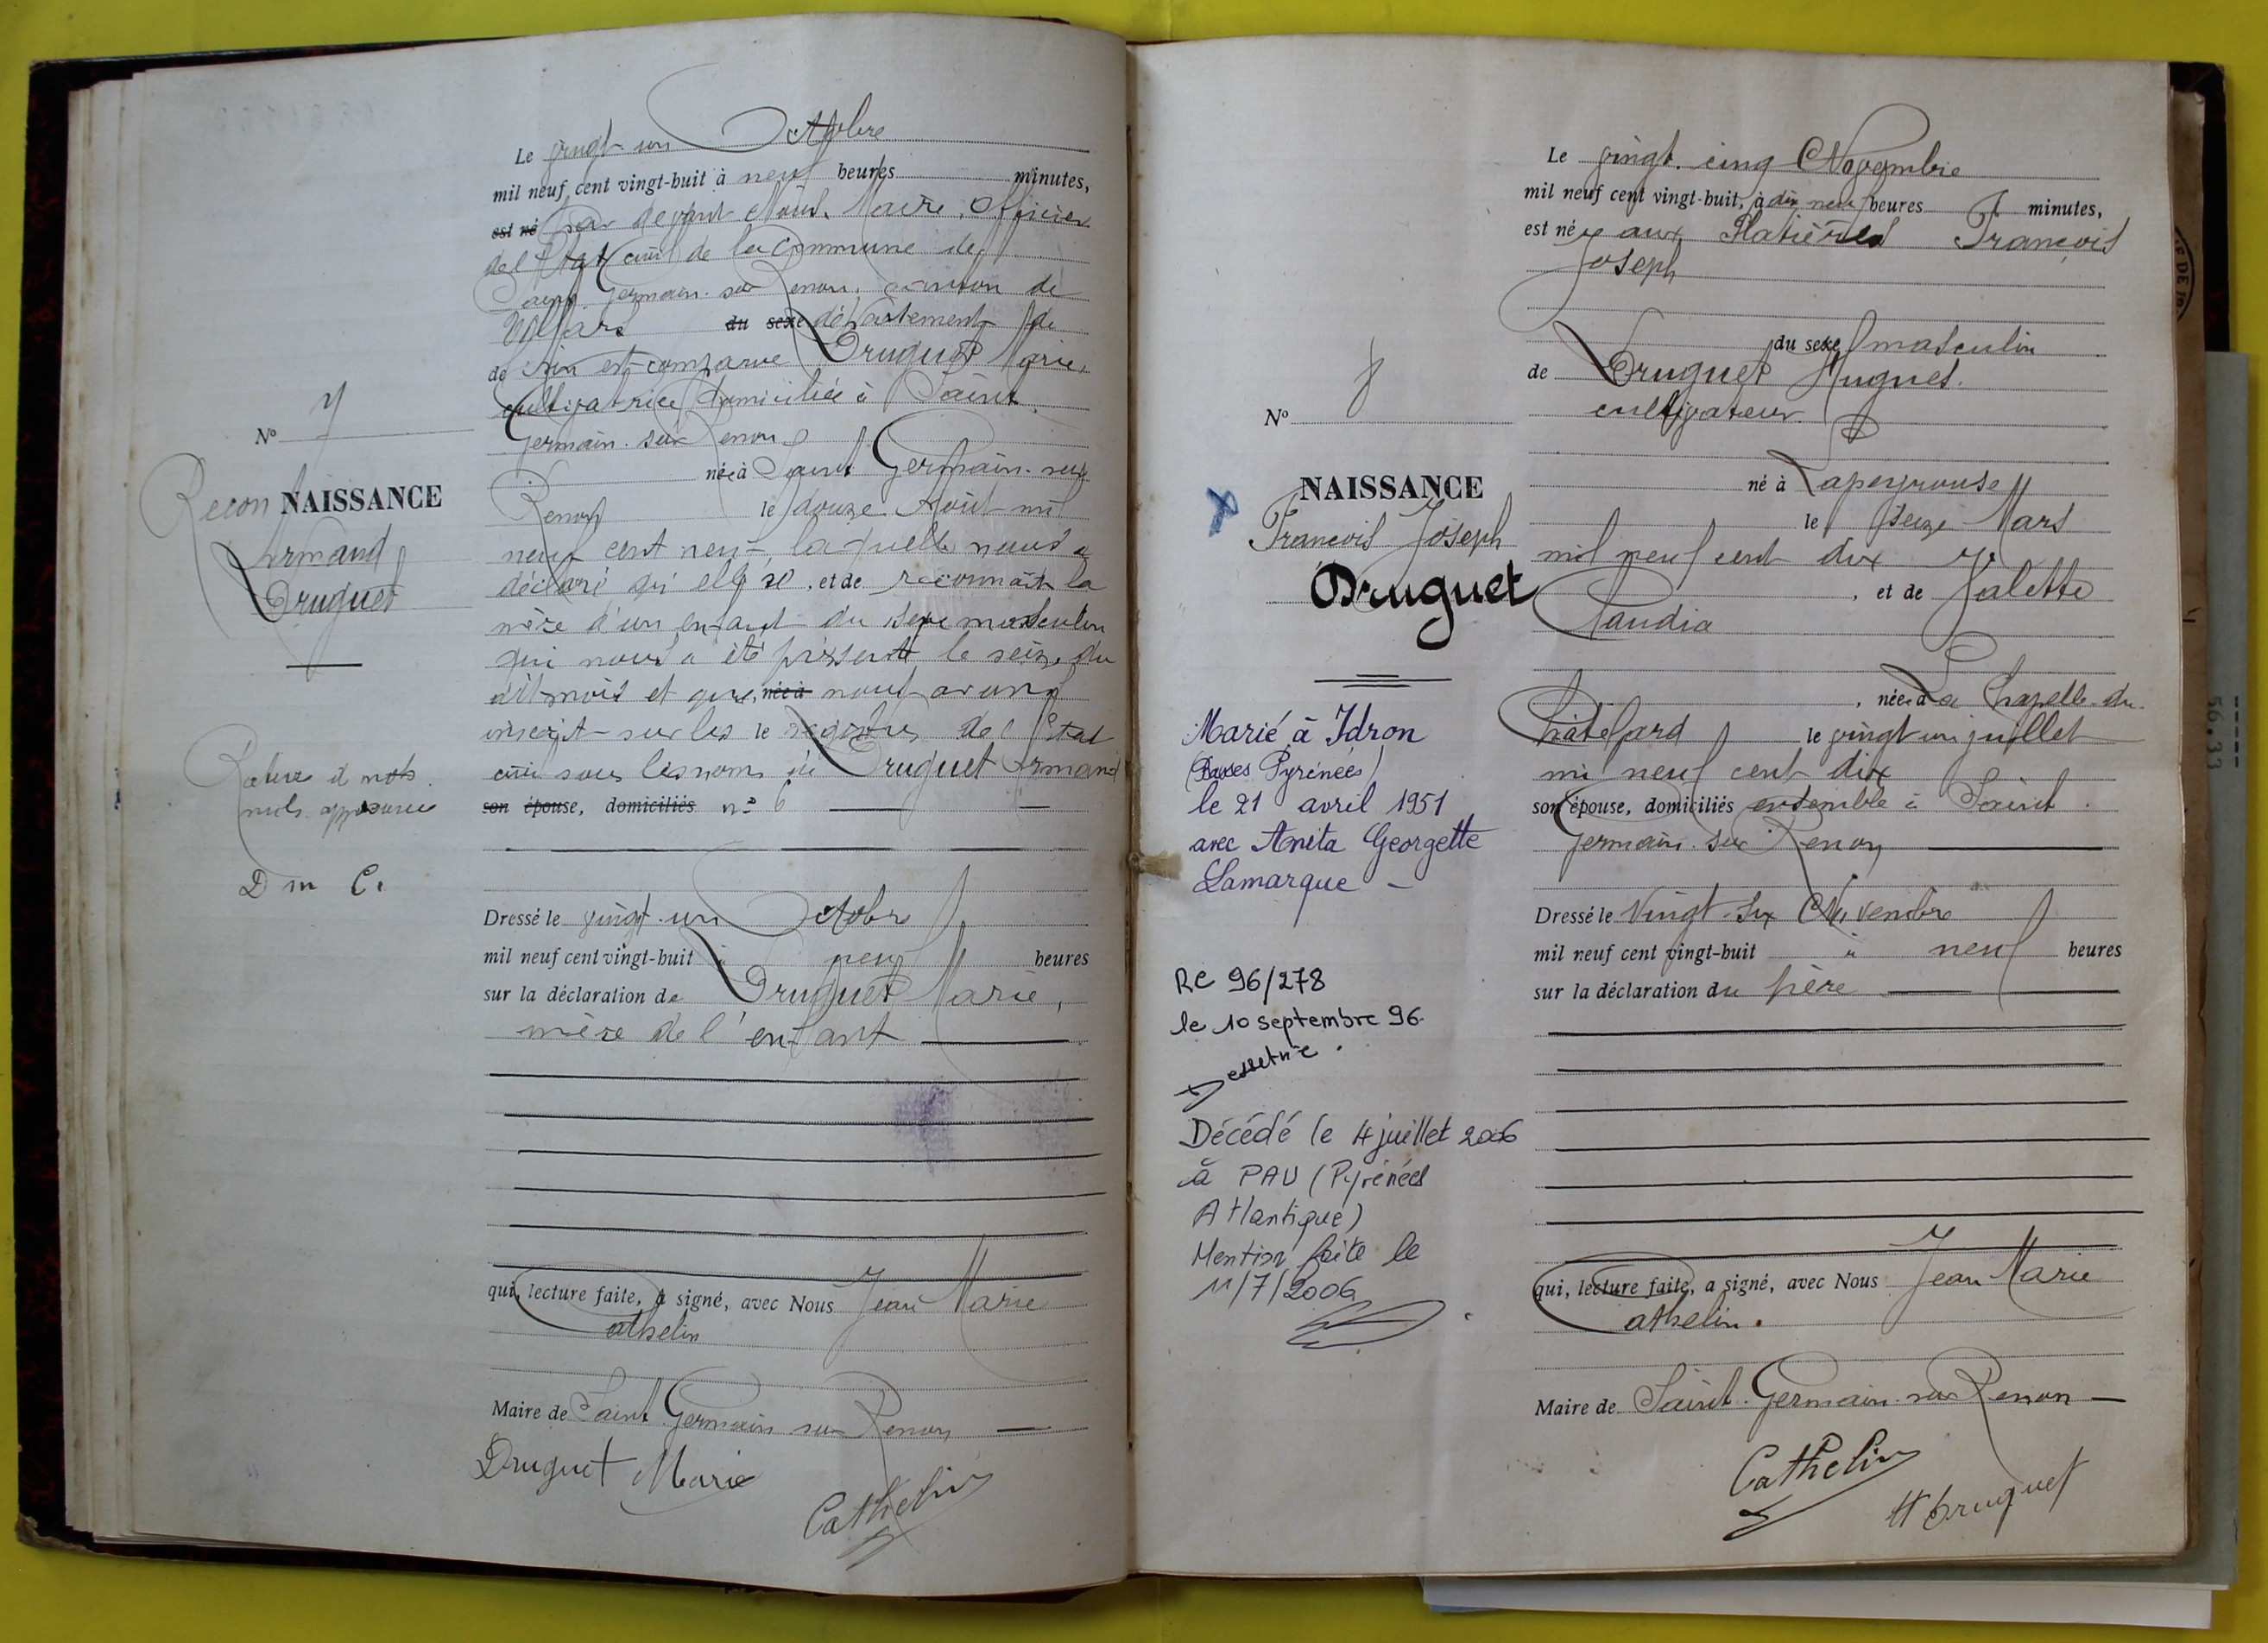 Le vingt-un Octobre
mil neuf cent vingt-huit à neuf heures minutes,
est né Par devant Nous, Maire, Officier
de l'Etat civil de la Commune de
Saint Germain sur Renon, canton de
Villars du sexe département de
de l'Ain est comparue Druguet Marie,
cultivatrice domiciliée à Saint
Germain sur Renon
née à Saint Germain sur
Renon le douze Août mil
neuf cent neuf, laquelle nous a
déclaré qu'elle se, et de reconnaît la
mère d'un enfant du sexe masculin
qui nous a été présenté le seize du
dit mois et que née à nous avons
inscrit sur les le registres de l'Etat
civil sous les noms de Druguet Armand
son épouse, domiciliés n° 6
Dressé le vingt-un Octobre
mil neuf cent vingt-huit à neuf heures
sur la déclaration de Druguet Marie,
mère de l'enfant
qui, lecture faite, a signé, avec Nous Jean Marie
Cathelin
Maire de Saint Germain sur Renon
Druguet Marie
Cathelin
N° 7
Recon NAISSANCE
Armand
Druguet
mots
nuls
D m C.
N° 8
NAISSANCE
François Joseph
Druguet
Marié à Idron
(Basses Pyrénées)
le 21 avril 1951
avec Anita Georgette
Lamarque -
RC 96/278
le 10 septembre 96.
Décédé le 4 juillet 2006
à PAU (Pyrénées
Atlantique)
Mention faite le
11/7/2006
Le vingt-cinq Novembre
mil neuf cent vingt-huit, à dix neuf heures minutes,
est né aux Platières François
Joseph
du sexe masculin
de Druguet Hugues.
cultivateur
né à Lapeyrouse
le seize Mars
mil neuf cent dix
, et de Jalette
Claudia
, née à La Chapelle-du-
Châtelard le vingt un juillet
mil neuf cent dix
son épouse, domiciliés ensemble à Saint
Germain sur Renon
Dressé le Vingt-six Novembre
mil neuf cent vingt-huit à neuf heures
sur la déclaration du père
qui, lecture faite, a signé, avec Nous Jean Marie
Cathelin.
Maire de Saint Germain sur Renon
Cathelin
H Druguet